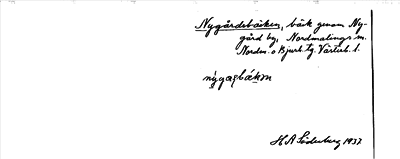 Nygårdsbäcken, bäck genom Ny-
gård by, Nordmalings sn.
Nordm. o Bjurh. tg. Västerb. l.
nýgaɳbäkɩn
H A Söderberg 1937